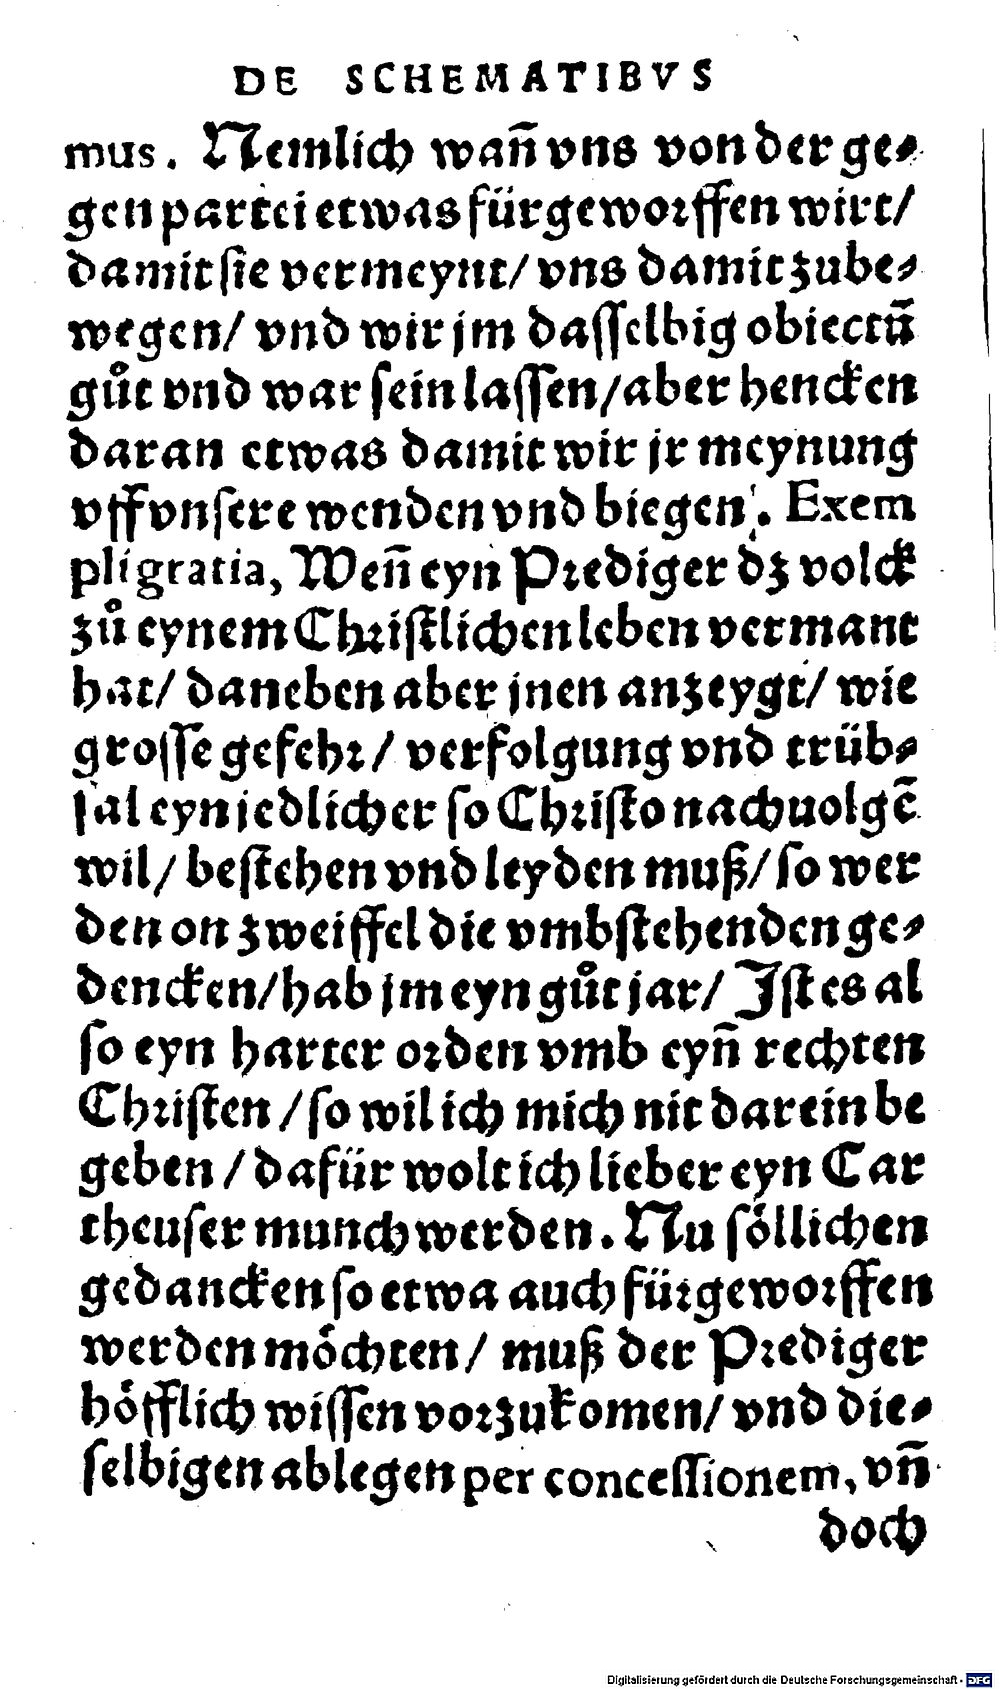 DE SCHEMATIBVS
mus. Nemlich wañ vns von der ge⸗
gen partei etwas fürgeworffen wirt/
damit sie vermeynt/ vns damit zube⸗
wegen/ vnd wir jm dasselbig obiectū
gůt vnd war sein lassen/ aber hencken
daran etwas damit wir jr meynung
vff vnsere wenden vnd biegen. Exem
pli gratia, Weñ eyn Prediger dz volck
zů eynem Christlichen leben vermant
hat/ daneben aber jnen anzeygt/ wie
grosse gefehr/ verfolgung vnd trüb⸗
sal eyn jedlicher so Christo nachuolgē
wil/ bestehen vnd leyden muß/ so wer
den on zweiffel die vmbstehenden ge⸗
dencken/ hab jm eyn gůt jar/ Ist es al
so eyn harter orden vmb eyñ rechten
Christen/ so wil ich mich nit darein be
geben/ dafür wolt ich lieber eyn Car
theuser munch werden. Nu söllichen
gedancken so etwa auch fürgeworffen
werden möchten/ muß der Prediger
höfflich wissen vorzukomen/ vnd die⸗
selbigen ablegen per concessionem, vñ
doch
Digitalisierung gefördert durch die Deutsche Forschungsgemeinschaft - DFG